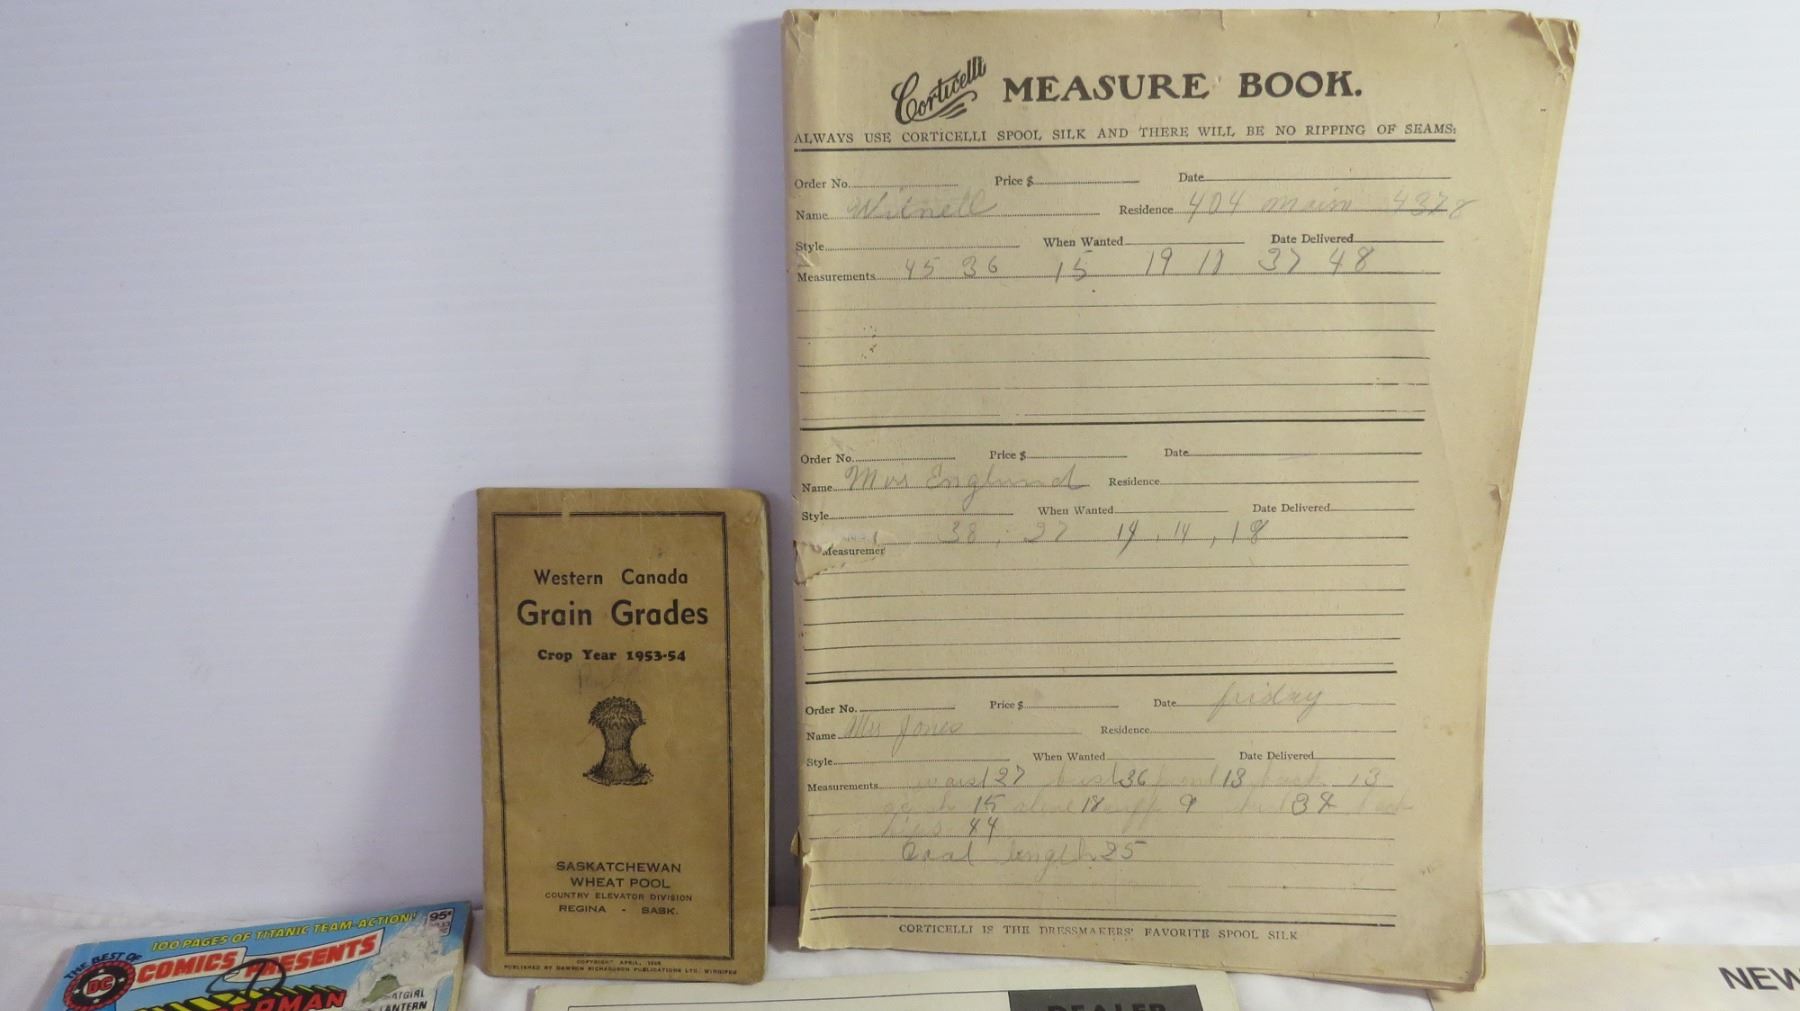 Corticelli MEASURE BOOK.
ALWAYS USE CORTICELLI SPOOL SILK AND THERE WILL BE NO RIPPING OF SEAMS:
Order No. Price $ Date
Name Witnell Residence 404 main 4378
Style When Wanted Date Delivered
Measurements 45 36 15 19 11 37 48
Order No. Price $ Date
Name Mrs Englund Residence
Style When Wanted Date Delivered
Measuremen 38, 27 14, 14, 18
Order No. Price $ Date friday
Name Mrs Jones Residence
Style When Wanted Date Delivered
Measurements waist 27 bust 36 front 13 back 13
15 18 9 38
hips 44
Coat length 25
CORTICELLI IS THE DRESSMAKERS' FAVORITE SPOOL SILK
Western Canada
Grain Grades
Crop Year 1953-54
SASKATCHEWAN
WHEAT POOL
COUNTRY ELEVATOR DIVISION
REGINA - SASK.
COPYRIGHT APRIL,
PUBLISHED BY DAWSON RICHARDSON PUBLICATIONS LTD. WINNIPEG
100 PAGES OF TITANIC TEAM-ACTION!
95¢
THE BEST OF
DC COMICS PRESENTS
ERMAN
ATGIRL
LANTERN
DEALER
NEW